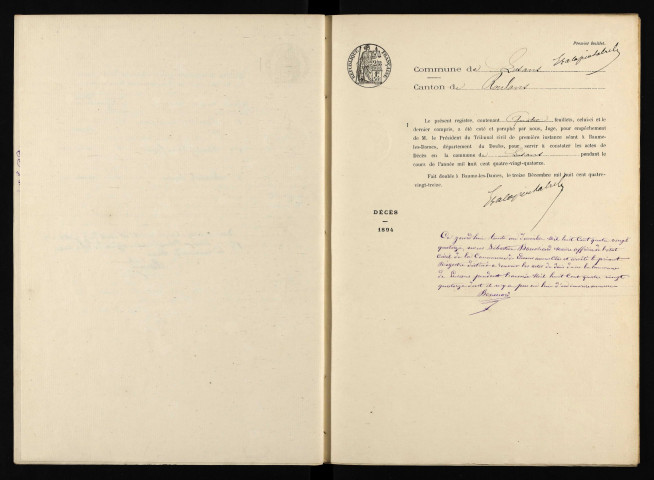 Premier feuillet.
RÉPUBLIQUE FRANÇAISE
Commune de Lusans
Canton de Roulans
Le présent registre, contenant Quatre feuillets, celui-ci et le
dernier compris, a été coté et paraphé par nous, Juge, pour empêchement
de M. le Président du Tribunal civil de première instance séant à Baume-
les-Dames, département du Doubs, pour servir à constater les actes de
Décès en la commune de Lusans pendant le
cours de l'année mil huit cent quatre-vingt-quatorze.
Fait double à Baume-les-Dames, le treize Décembre mil huit cent quatre-
vingt-treize.
DÉCÈS
1894
Ce jourd'hui trente un décembre mil huit cent quatre vingt
quatorze, nous Sébastien maire officier de l'état
civil de la Commune de avons clos et arrêté le présent
registre destiné à recevoir les actes de décès dans la commune
de Lusans pendant l'année mil huit cent quatre vingt
quatorze et il n'y a pas eu lieu d'en